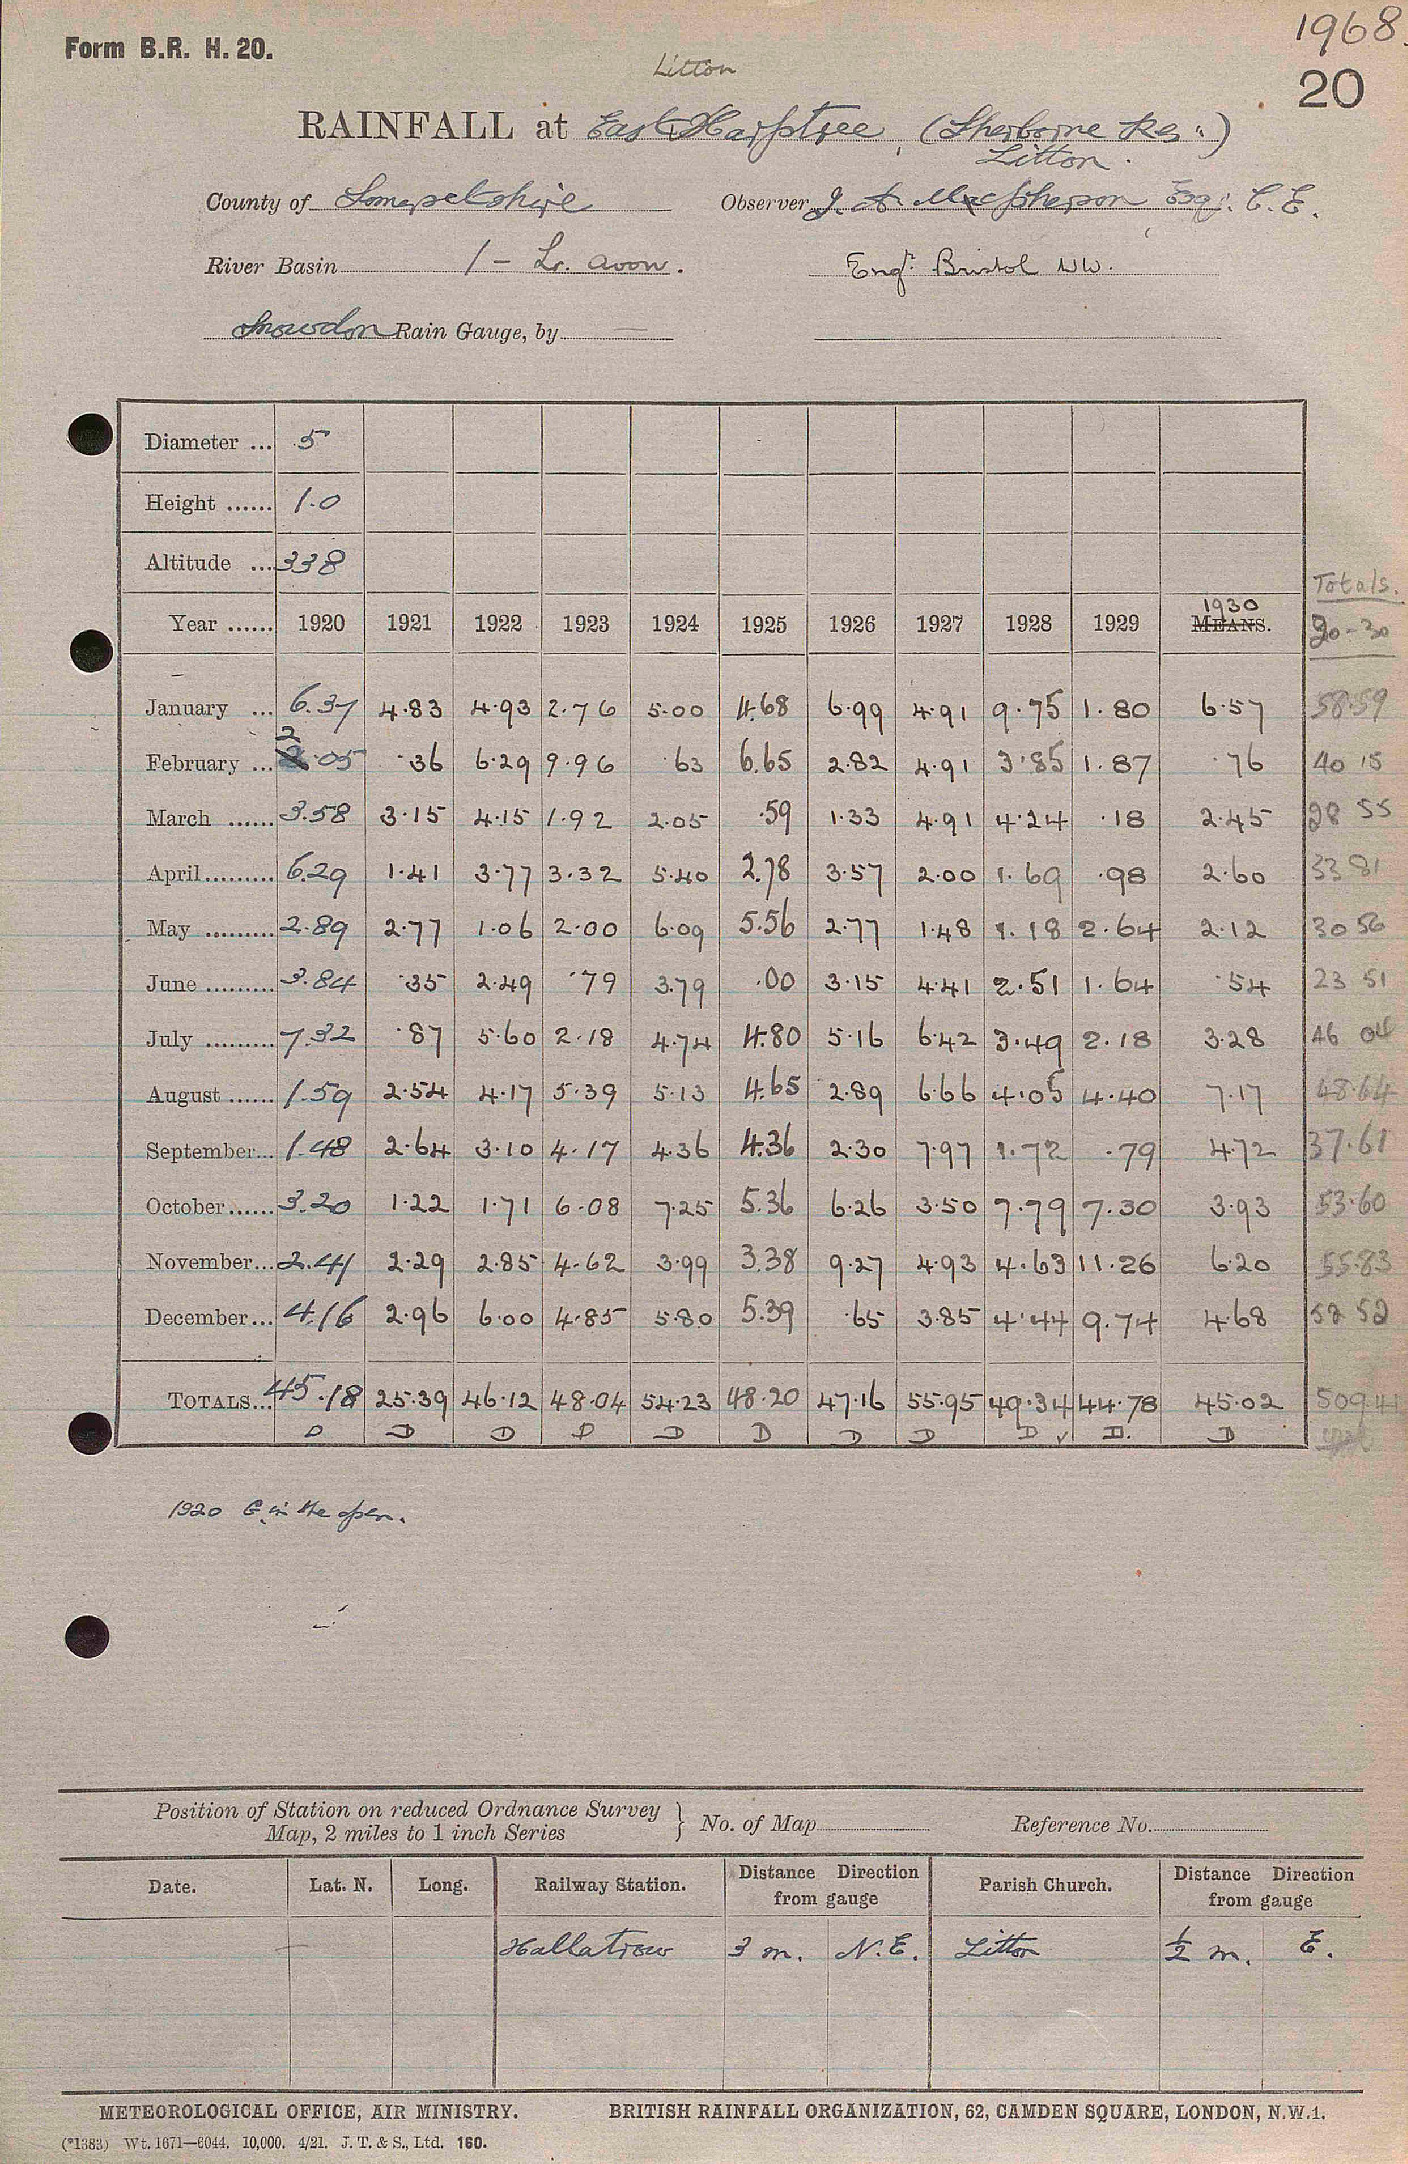 1968.
Form B.R. H. 20.
20
Litton
RAINFALL at East Harptree, (Sherborne Res.)
Litton.
County of Somersetshire Observer J. A. MacPherson Esq. C.E.
River Basin 1 - Lr. Avon. Engr. Bristol WW.
Snowdon Rain Gauge, by
Diameter ... 5
Height ...... 1.0
Altitude ... 338
Totals.
Year ...... 1920 1921 1922 1923 1924 1925 1926 1927 1928 1929 1930 MEANS. 20-30
January ... 6.37 4.83 4.93 2.76 5.00 4.68 6.99 4.91 9.75 1.80 6.57 58.59
February ... 2.05 .36 6.29 9.96 .63 6.65 2.82 4.91 3.85 1.87 .76 40 15
March ...... 3.58 3.15 4.15 1.92 2.05 .59 1.33 4.91 4.24 .18 2.45 28 55
April......... 6.29 1.41 3.77 3.32 5.40 2.78 3.57 2.00 1.69 .98 2.60 33 81
May ......... 2.89 2.77 1.06 2.00 6.09 5.56 2.77 1.48 1.18 2.64 2.12 30 56
June ......... 3.84 .35 2.49 .79 3.79 .00 3.15 4.41 2.51 1.64 .54 23 51
July ......... 7.32 .87 5.60 2.18 4.74 4.80 5.16 6.42 3.49 2.18 3.28 46 04
August ...... 1.59 2.54 4.17 5.39 5.13 4.65 2.89 6.66 4.05 4.40 7.17 48.64
September... 1.48 2.64 3.10 4.17 4.36 4.36 2.30 7.97 1.72 .79 4.72 37.61
October...... 3.20 1.22 1.71 6.08 7.25 5.36 6.26 3.50 7.79 7.30 3.93 53.60
November... 2.41 2.29 2.85 4.62 3.99 3.38 9.27 4.93 4.63 11.26 6.20 55.83
December... 4.16 2.96 6.00 4.85 5.80 5.39 .65 3.85 4.44 9.74 4.68 52 52
TOTALS... 45.18 25.39 46.12 48.04 54.23 48.20 47.16 55.95 49.34 44.78 45.02 509.41
D D D D D D D D D ✓ D. D
1920 G. in the open.
Position of Station on reduced Ordnance Survey Map, 2 miles to 1 inch Series } No. of Map Reference No.
Date. Lat. N. Long. Railway Station. Distance Direction from gauge Parish Church. Distance Direction from gauge
Hallatrow 3 m. N.E. Litton ½ m. E.
METEOROLOGICAL OFFICE, AIR MINISTRY. BRITISH RAINFALL ORGANIZATION, 62, CAMDEN SQUARE, LONDON, N.W.1.
(*1383) Wt. 1671—6044. 10,000. 4/21. J. T. & S., Ltd. 160.